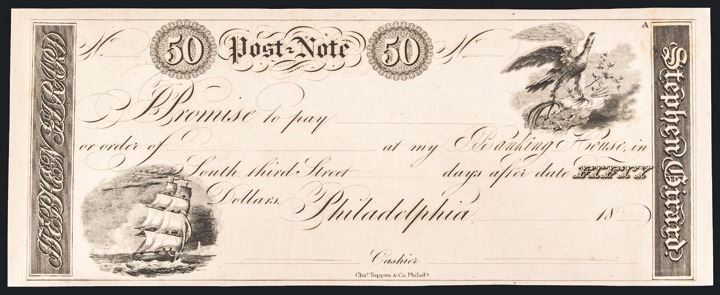 A
No 50 Post-Note 50 No
I Promise to pay
or order of at my Banking House, in
South third Street days after date FIFTY
Dollars, Philadelphia 18
Cashier
Chas. Toppan & Co. Philada.
STEPHEN GIRARD
Stephen Girard